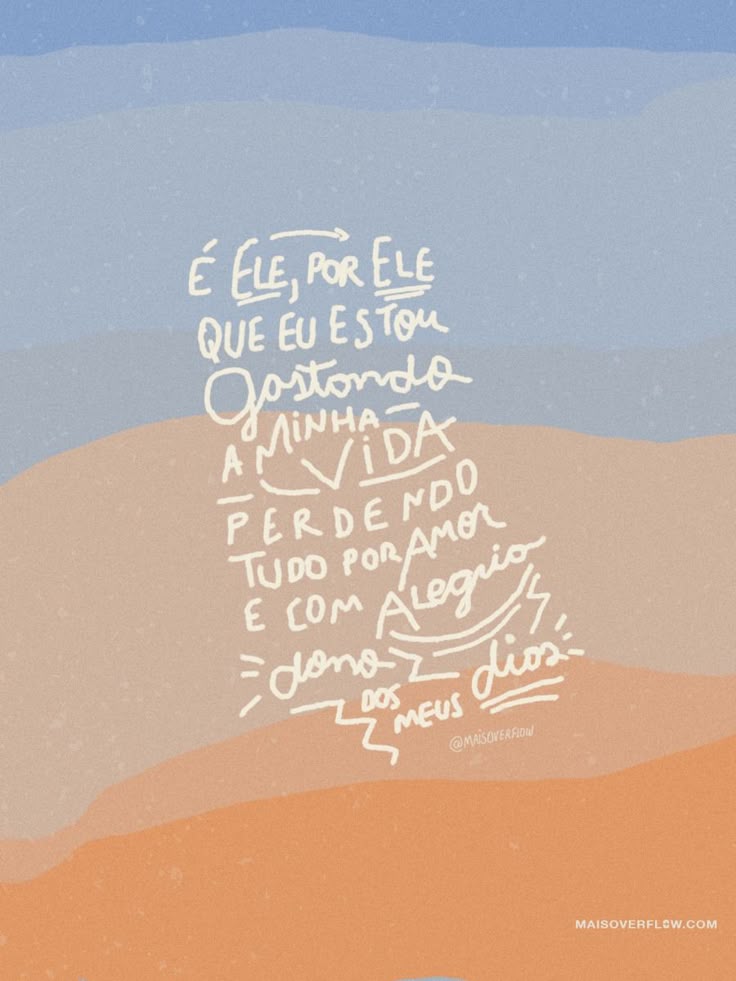 É ELE, POR ELE
QUE EU ESTOU
Gastando
A MINHA
VIDA
PERDENDO
TUDO POR AMOR
E COM ALEGRIA
dono
DOS
MEUS dias
@MAISOVERFLOW
MAISOVERFLOW.COM